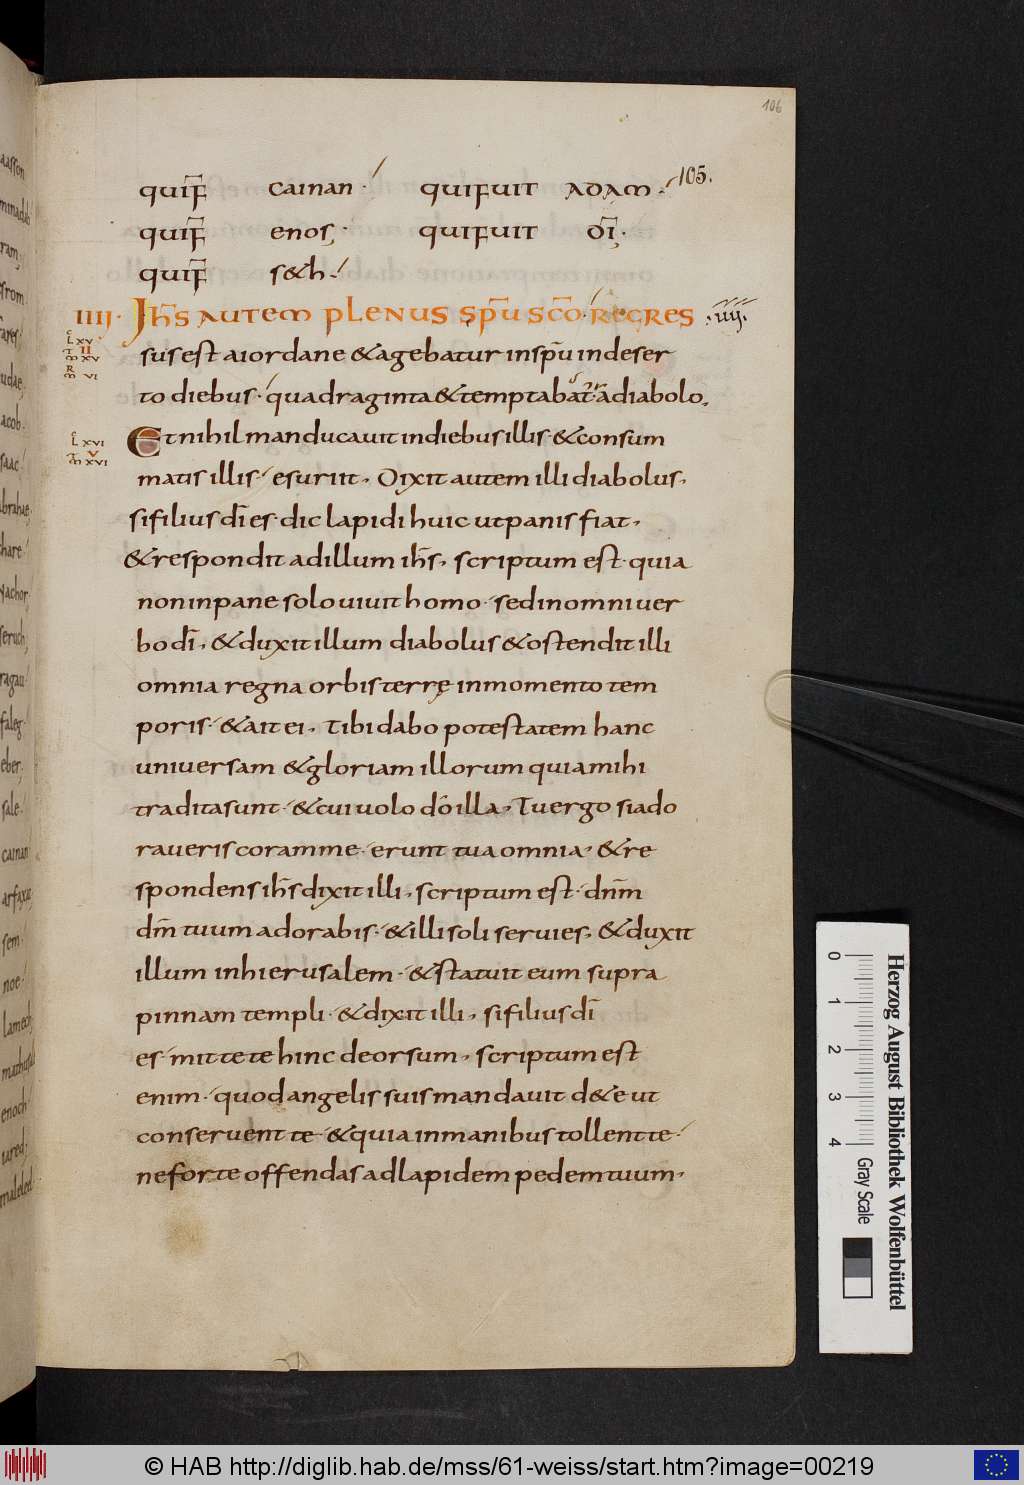 106
105.
quif̄ cainan · quifuit adam ·
quif̄ enos · quifuit dī ·
quif̄ s&h ·
IIII · Ihs̄ autem plenus sp̄u scō · regres · iiii ·
sus est a iordane & agebatur in sp̄u in deser
to diebus · quadraginta & temptabat a diabolo.
Et nihil manducauit in diebus illis · & consum
matis illis · esuriit · Dixit autem illi diabolus ·
si filius dī es · dic lapidi huic ut panis fiat ·
& respondit ad illum ihs̄ · scriptum est · quia
non in pane solo uiuit homo · sed in omni uer
bo dī · & duxit illum diabolus & ostendit illi
omnia regna orbis terrę in momento tem
poris · & ait ei · Tibi dabo potestatem hanc
universam & gloriam illorum quia mihi
tradita sunt · & cui uolo do illa · Tu ergo si ado
raueris coram me · erunt tua omnia · & re
spondens ihs̄ dixit illi · scriptum est · dnm̄
dm̄ tuum adorabis · & illi soli servies · & duxit
illum in hierusalem · & statuit eum supra
pinnam templi · & dixit illi · si filius dī
es · mitte te hinc deorsum · scriptum est
enim · quod angelis suis mandauit de te ut
conservent te · & quia in manibus tollent te ·
ne forte offendas ad lapidem pedem tuum ·
0 1 2 3 4
Gray Scale
Herzog August Bibliothek Wolfenbüttel
© HAB http://diglib.hab.de/mss/61-weiss/start.htm?image=00219